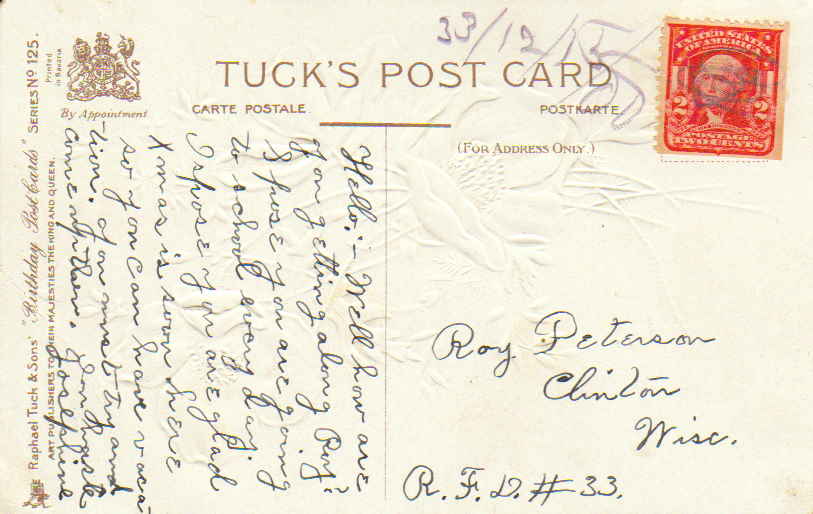 33/12/13
UNITED STATES
OF AMERICA
2 2
POSTAGE
TWO CENTS
Printed
in Bavaria
By Appointment
TUCK'S POST CARD
CARTE POSTALE.
POSTKARTE.
(FOR ADDRESS ONLY.)
Raphael Tuck & Sons' "Birthday Post Cards" SERIES Nº 125.
ART PUBLISHERS TO THEIR MAJESTIES THE KING AND QUEEN.
Hello;- Well how are
you getting along Roy?
I spose you are going
to school every day.
I spose you are glad
Xmas is soon here
so you can have vaca-
tion. You must try and
come up then.
Josephine
Roy Peterson
Clinton
Wisc.
R.F.D. # 33.